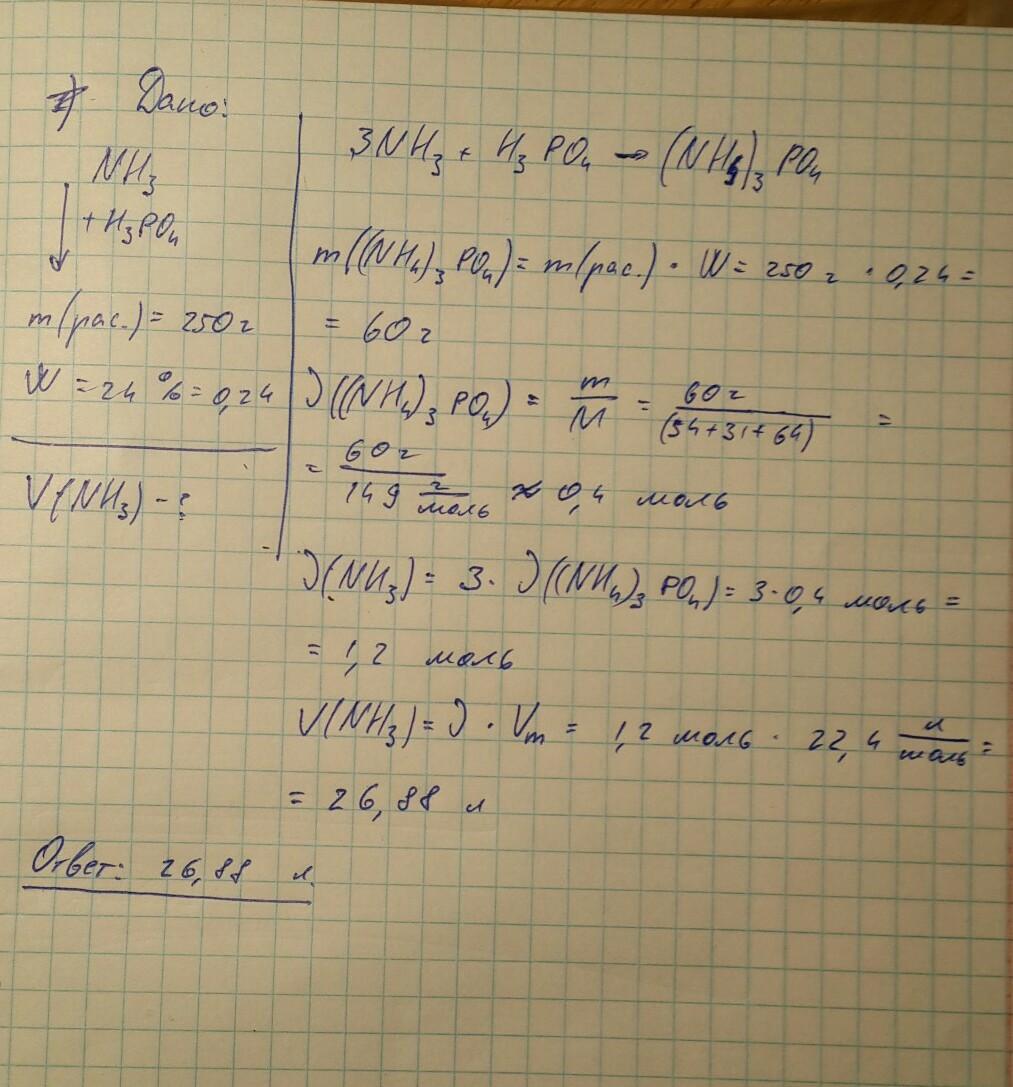 Дано:
NH₃
+ H₃PO₄
m(рас.) = 250 г
W = 24 % = 0,24
V(NH₃) - ?
3NH₃ + H₃PO₄ → (NH₄)₃PO₄
m((NH₄)₃PO₄) = m(рас.) · W = 250 г · 0,24 =
= 60 г
ν((NH₄)₃PO₄) = m/M = 60 г/(54+31+64) =
= 60 г/149 г/моль ≈ 0,4 моль
ν(NH₃) = 3 · ν((NH₄)₃PO₄) = 3 · 0,4 моль =
= 1,2 моль
V(NH₃) = ν · Vm = 1,2 моль · 22,4 л/моль =
= 26,88 л
Ответ: 26,88 л.